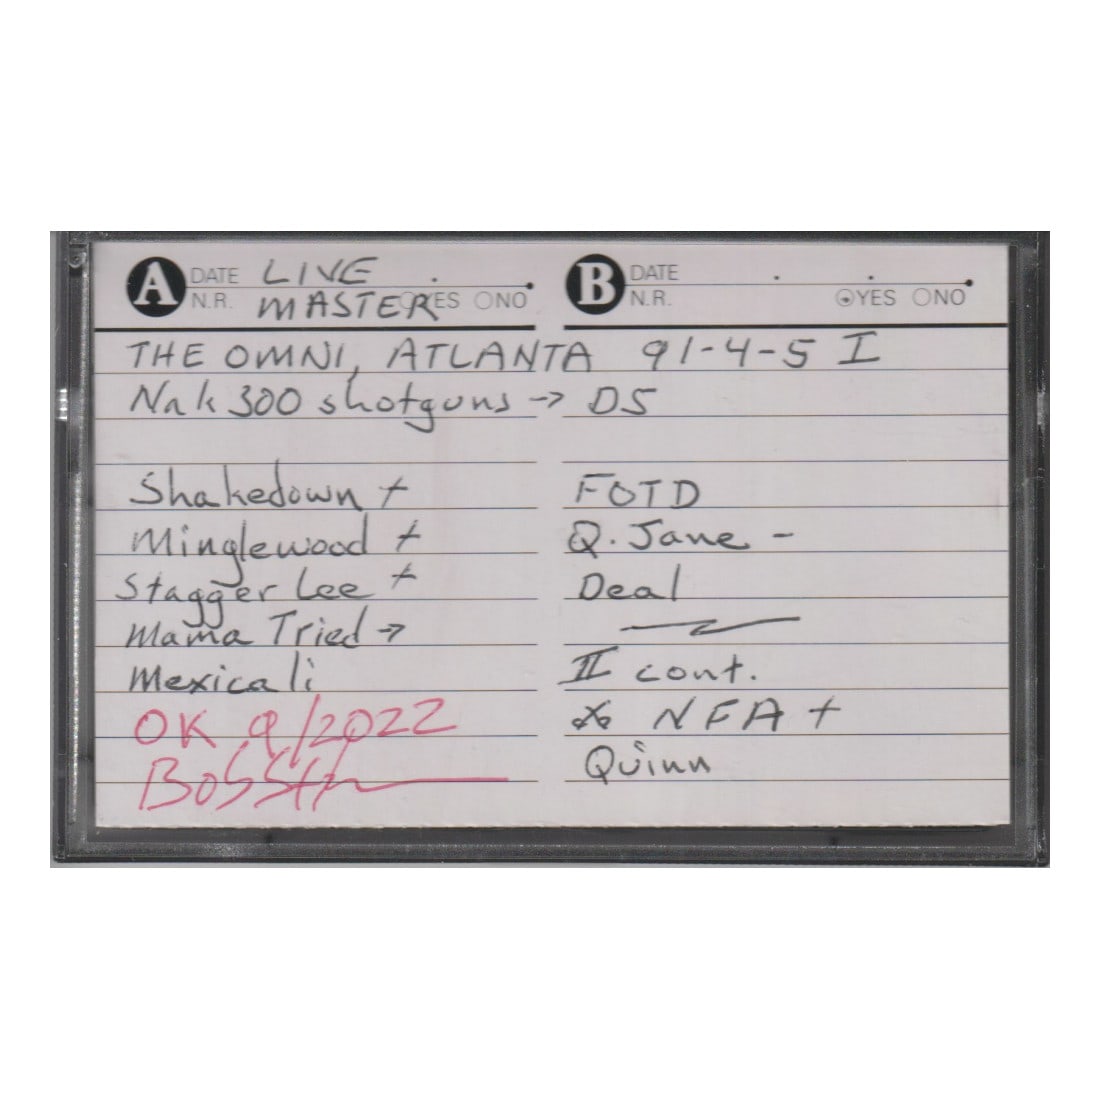 A DATE LIVE
N.R. MASTER YES NO
B DATE
N.R. YES NO
THE OMNI, ATLANTA 91-4-5 I
Nak 300 shotguns → D5
Shakedown +
Minglewood +
Stagger Lee +
Mama Tried →
Mexicali
OK 9/2022
FOTD
Q. Jane -
Deal
II cont.
NFA +
Quinn